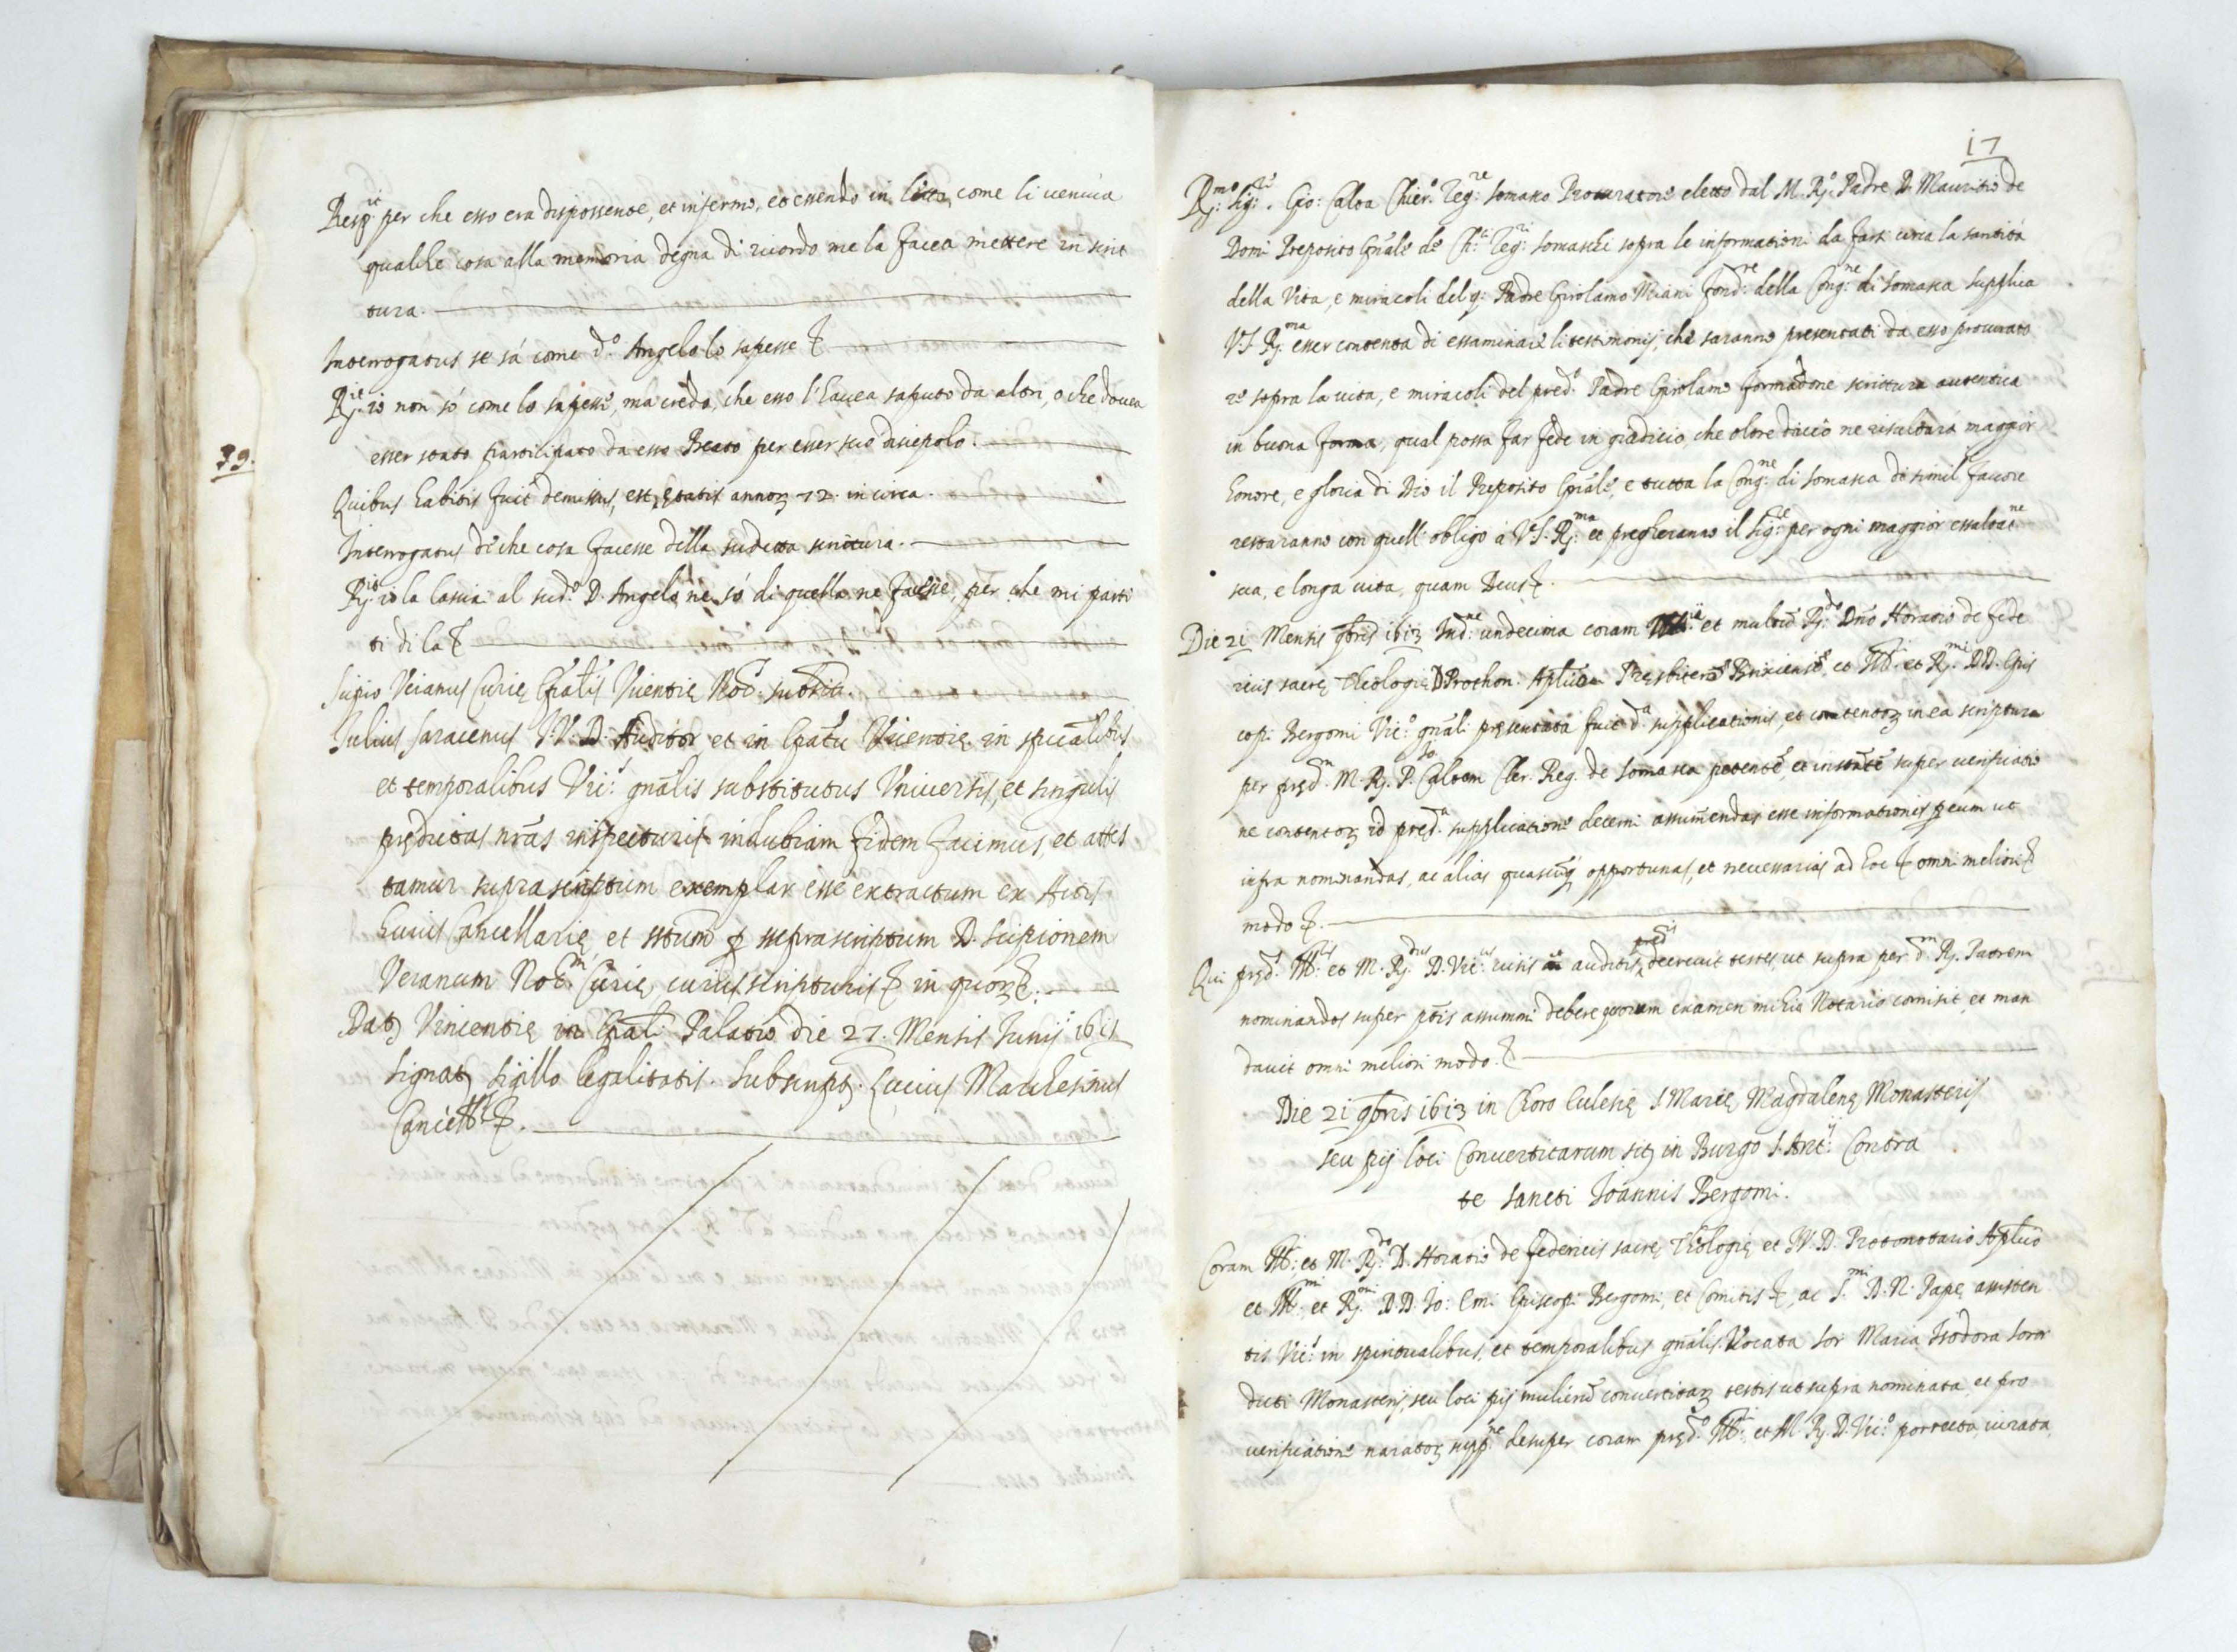 Resp.it per che esso era dispossente, et infermo, et essendo in letto, come li veniva
qualche cosa alla memoria degna di ricordo me la facea mettere in scrit
tura.
Interrogatus se sà come d.o Angelo lo sapesse
R.it io non sò come lo sapesse, mà credo, che esso l'havea saputo da altri, o che dovea
esser stato participato da esso Beato per esser suo discepolo.
79.
Quibus habitis fuit demissus, est ętatis annoꝝ 72. in circa.
Interrogatus de che cosa facesse della sudetta scrittura.
R.it io la lasciai al sud.o D. Angelo ne sò di quella ne facesse, per che mi parti
ti di la
Scipio Veranus Curię Ep̃alis Vicentię Not.
Julius Saracenus I.V.D. Auditor et in Ep̃atu Vicentię in sp̃ualibus
et temporalibus Vic.s gñalis substitutus Universis, et singulis
prędictas nr̃as inspecturis indubiam fidem facimus, et attes
tamur suprascriptum exemplar esse extractum ex Actis
huius Cancellarię, et per suprascriptum D. Scipionem
Veranum Not.m Curię, cuius scripturis in quoꝝ.
Dat Vincentię in Ep̃ali Palatio die 27. Mensis Junij 1615
Signat sigillo legalitatis. Subscript. Lucius Marchesinus
Cancell.s
17
R.mo Sig.re. Gio: Calta Chier.o Reg.re Somasco Procuratore eletto dal M. R.o Padre D. Mauritio de
Domi Preposito Gñale de Ch.ci Reg.ri Somaschi sopra le informationi da farsi circa la santità
della Vita, e miracoli del q. Padre Girolamo Miani Fond.re della Cong.ne di Somasca supplica
V.S. R.ma esser contenta di essaminare li testimonij, che saranno presentati da esso procurato
re sopra la vita, e miracoli del pred.o Padre Girolamo formadone scrittura autentica
in buona forma, qual possa far fede in giudicio, che oltre diciò ne risultarà maggior
honore, e gloria di Dio il Preposito Gñale, e tutta la Cong.ne di Somasca de simil favore
restaranno con quell' obligo à V.S. R.ma et pregheranno il Sig.re per ogni maggior essaltat.ne
sua, e longa vita, quam Deus.
Die 21 Mensis 9bris 1613 Ind.ne undecima coram Ill. et multũ R.do Dño Horatio de Fede
ricis sacrę Theologię D. Prothon. Ap̃lico Pręsbitero Brixiense, et Ill.mi et R.mi DD. Epis
copi Bergomi Vic.o gñali pręsentata fuit d.a supplicationis, et contentoꝝ in ea scriptura
per pręd.m M. R. P. Jo. Caltam Cler. Reg. de Somasca petentẽ, et instãtẽ super verificatio
ne contentoꝝ id pręd.a supplicatione decerni assumendas esse informationis per eum ut
infra nominandas, ac alias quascunq opportunas, et necessarias ad hoc omni meliori
modo.
Qui pręd. Ill.is et M. R.dus D. Vic.us visis auditis, decrevit testes, ut supra per d.m R. Patrem
nominandos super p̃tis assummi debere quorum examen mihi Notario comisit, et man
davit omni meliori modo.
Die 21 9bris 1613 in Choro Eclesię S. Marię Magdalenę Monasterij
seu pij loci Convertitarum sit in Burgo S. Ant.ij Contra
te Sancti Joannis Bergomi.
Coram Ill. et M. R.do D. Horatio de Federicis sacrę Theologię et I.V.D. Protonotario Ap̃lico
et Ill.mi et R.mi D.D. Jo: Emi Episcopi Bergomi, et Comitis, ac S.mi D. N. Papę assisten
tis Vic.o in spiritualibus, et temporalibus gñalis. Vocata Sor Maria Isodora soror
dicti Monasterij, seu loci pij mulierũ convertitaꝝ testis ut supra nominata, et pro
verificatione naratoꝝ supp.ne desuper coram pręd.o Ill. et M. R. D. Vic.o porrecta iurata